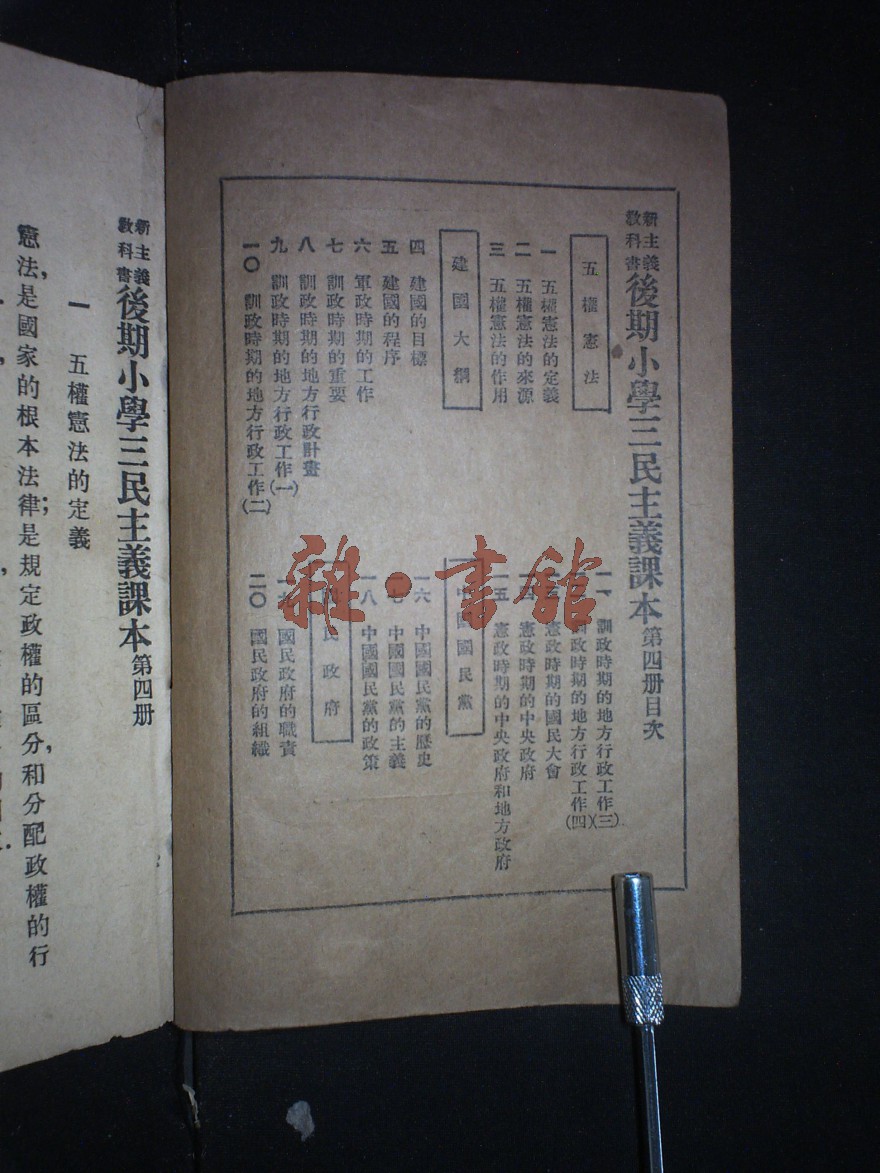 新主義教科書後期小學三民主義課本第四册目次
五權憲法
一 五權憲法的定義
二 五權憲法的來源
三 五權憲法的作用
建國大綱
四 建國的目標
五 建國的程序
六 軍政時期的工作
七 訓政時期的重要
八 訓政時期的地方行政計畫
九 訓政時期的地方行政工作(一)
一〇 訓政時期的地方行政工作(二)
一一 訓政時期的地方行政工作(三)
訓政時期的地方行政工作(四)
憲政時期的國民大會
憲政時期的中央政府
一五 憲政時期的中央政府和地方政府
中國國民黨
一六 中國國民黨的歷史
一七 中國國民黨的主義
一八 中國國民黨的政策
國民政府
一九 國民政府的職責
二〇 國民政府的組織
新主義教科書後期小學三民主義課本第四册
一 五權憲法的定義
憲法,是國家的根本法律;是規定政權的區分,和分配政權的行
雜·書館